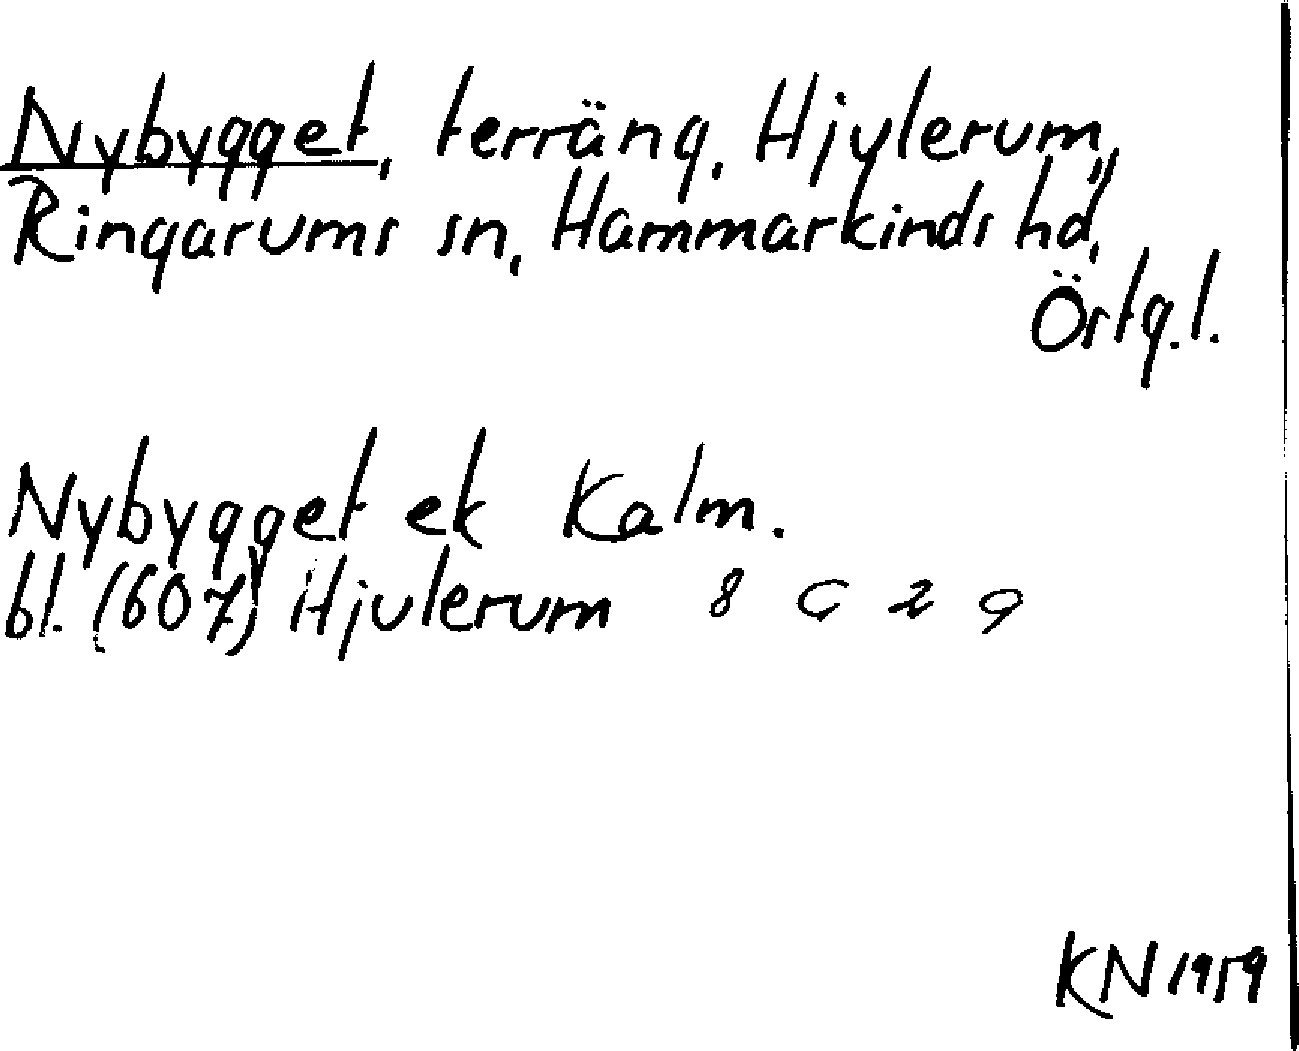 Nybygget, terräng, Hjylerum,
Ringarums sn, Hammarkinds hd,
Östg.l.
Nybygget ek Kalm.
bl. (607) Hjulerum 8 G 2 9
KN 1959